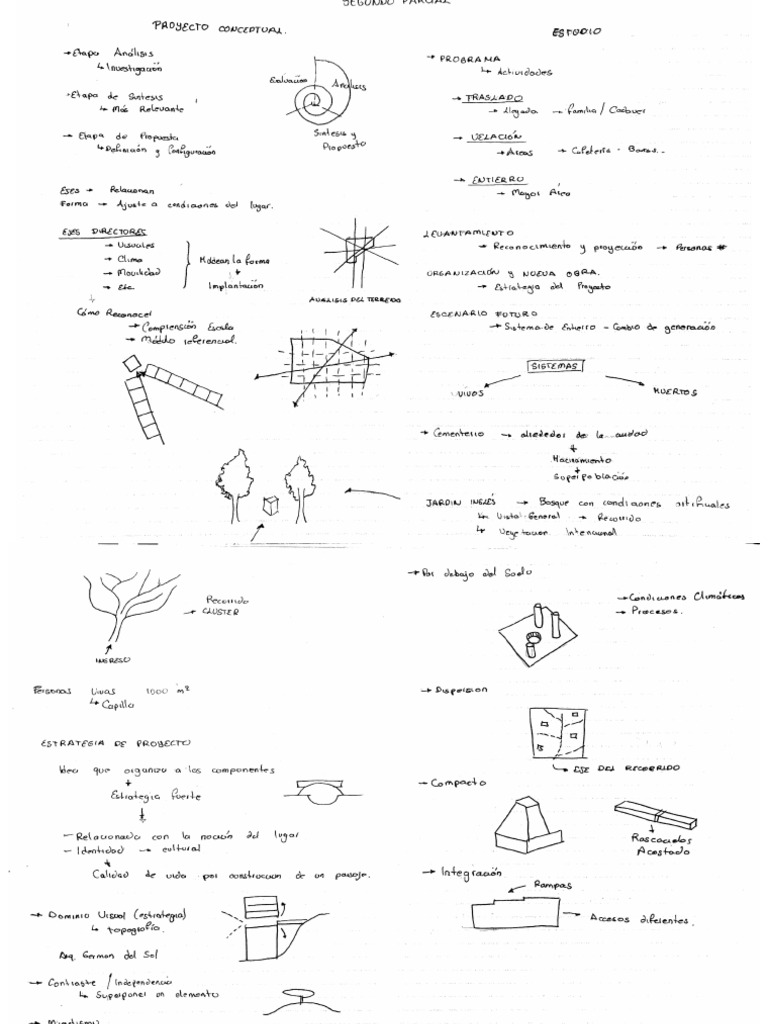 SEGUNDO PARCIAL
PROYECTO CONCEPTUAL.
→ Etapa Análisis
↳ Investigación
- Etapa de Sintesis
↳ Más Relevante
→ Etapa de Propuesta
↳ Definición y Configuración
Evaluación
Análisis
Sintesis y
Propuesto
Eses → Relacionan
Forma → Ajuste a condiciones del lugar.
EJES DIRECTORES
→ Visuales
→ Clima
→ Movilidad
→ Etc
Moldean la forma
+
Implantación
ANALISIS DEL TERRENO
Cómo Reconocer
→ Comprensión Escala
→ Módulo referencial.
ESTUDIO
→ PROGRAMA
↳ Actividades
→ TRASLADO
→ llegada → Familia / Cadaver
→ VELACIÓN
→ Areas → Cafetería - Baños..
→ ENTIERRO
→ Mayor Área
LEVANTAMIENTO
→ Reconocimiento y proyección → Personas #
ORGANIZACIÓN y NUEVA OBRA.
→ Estrategia del Proyecto
ESCENARIO FUTURO
→ Sistema de Entierro - Cambio de generación
SISTEMAS
VIVOS
MUERTOS
→ Cementerio → alrededor de la ciudad
+
Hacinamiento
+
Superpoblación
JARDIN INGLÉS → Bosque con condiciones artificiales
↳ Vista General → Recorrido
↳ Vegetacion Intencional
Recorrido
→ CLUSTER
INGRESO
Personas Vivas 1000 m²
↳ Capilla
ESTRATEGIA DE PROYECTO
Idea que organiza a los componentes
+
Estrategia fuerte
- Relacionada con la noción del lugar
- Identidad → cultural
+
Calidad de vida por construccion de un paisaje.
→ Dominio Visual (estrategia)
↳ topografía.
Arq. German del Sol
→ Contraste / Independencia
↳ Superponer un elemento
→ Por debajo del Suelo
→ Condiciones Climáticas
→ Procesos.
→ Dispersion
↳ EJE DEL RECORRIDO
→ Compacto
Rascacielos
Acostado
→ Integración
Rampas
→ Accesos diferentes.